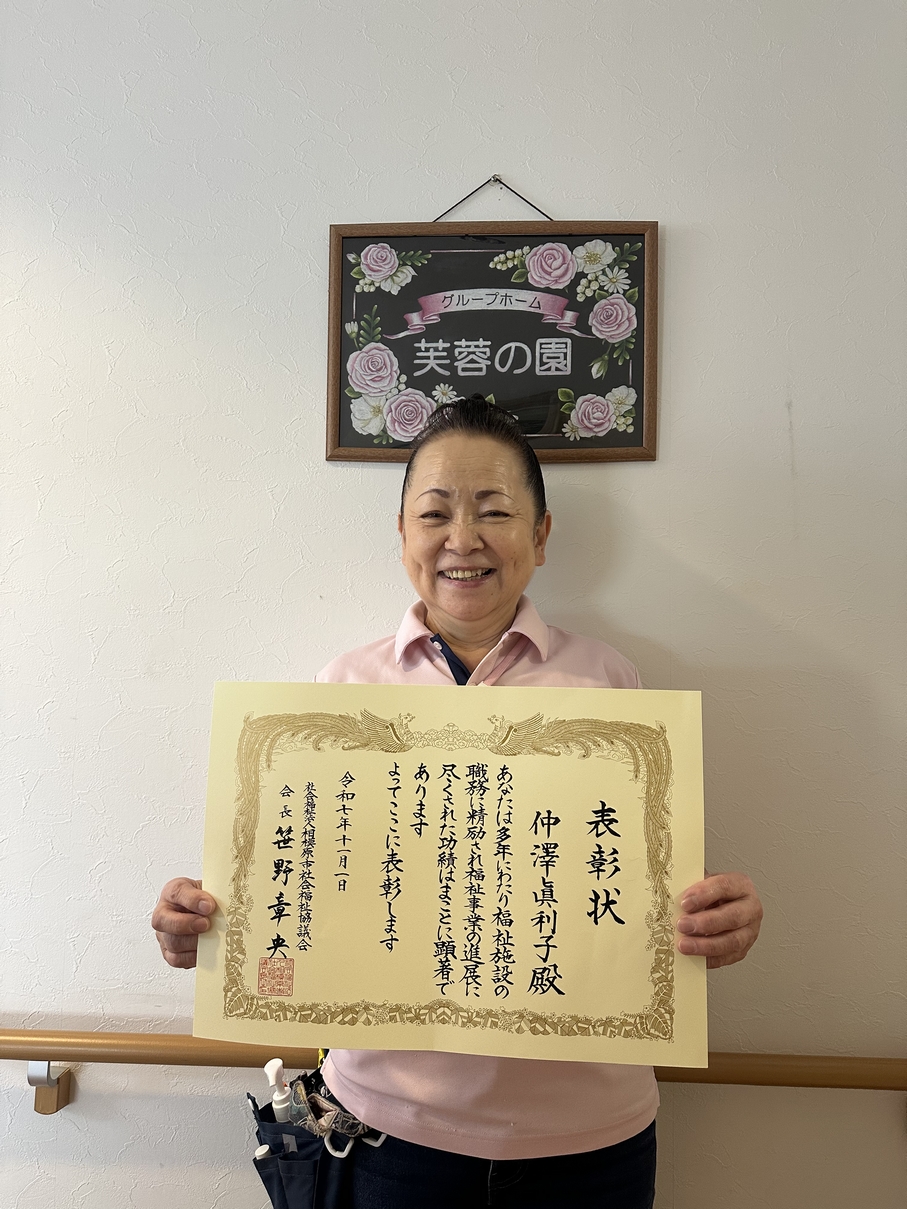 グループホーム
芙蓉の園
表彰状
仲澤眞利子殿
あなたは多年にわたり福祉施設の
職務に精励され福祉事業の進展に
尽くされた功績はまことに顕著で
あります
よってここに表彰します
令和七年十一月一日
社会福祉法人相模原市社会福祉協議会
会長 笹野章央